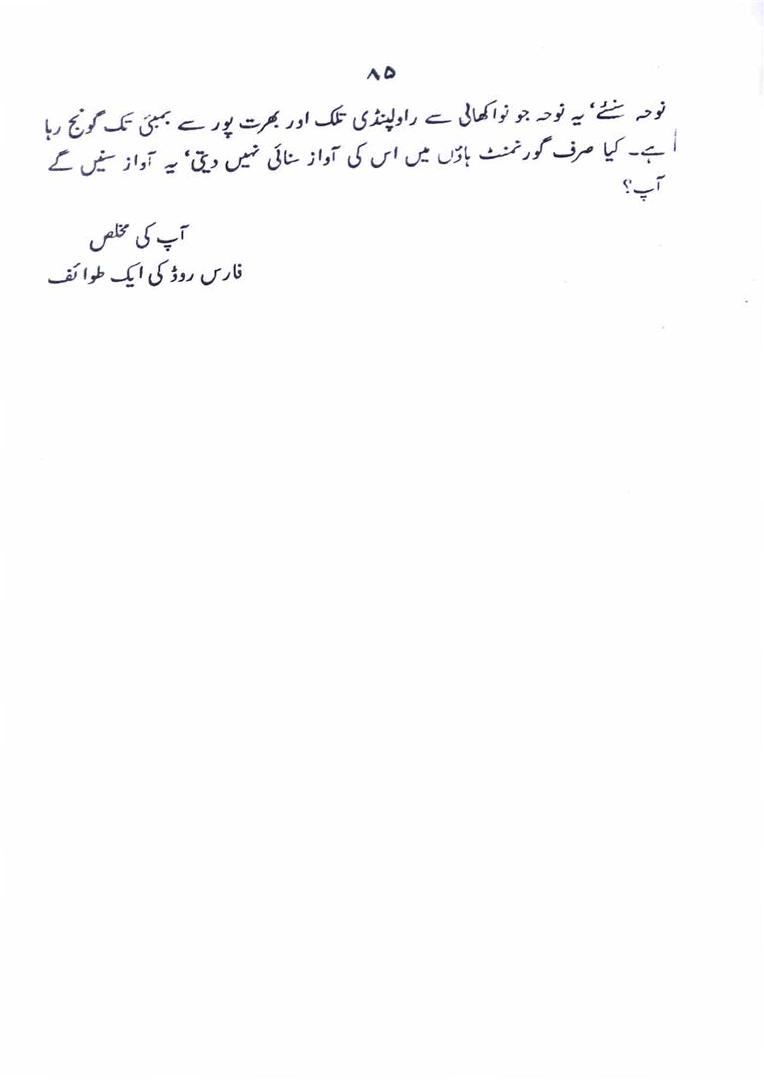 ۸۵
نوحہ سنئے، یہ نوحہ جو نواکھالی سے راولپنڈی تلک اور بھرت پور سے بمبئی تک گونج رہا
ہے۔ کیا صرف گورنمنٹ ہاؤں میں اس کی آواز سنائی نہیں دیتی، یہ آواز سنیں گے
آپ؟
آپ کی مخلص
فارس روڈ کی ایک طوائف